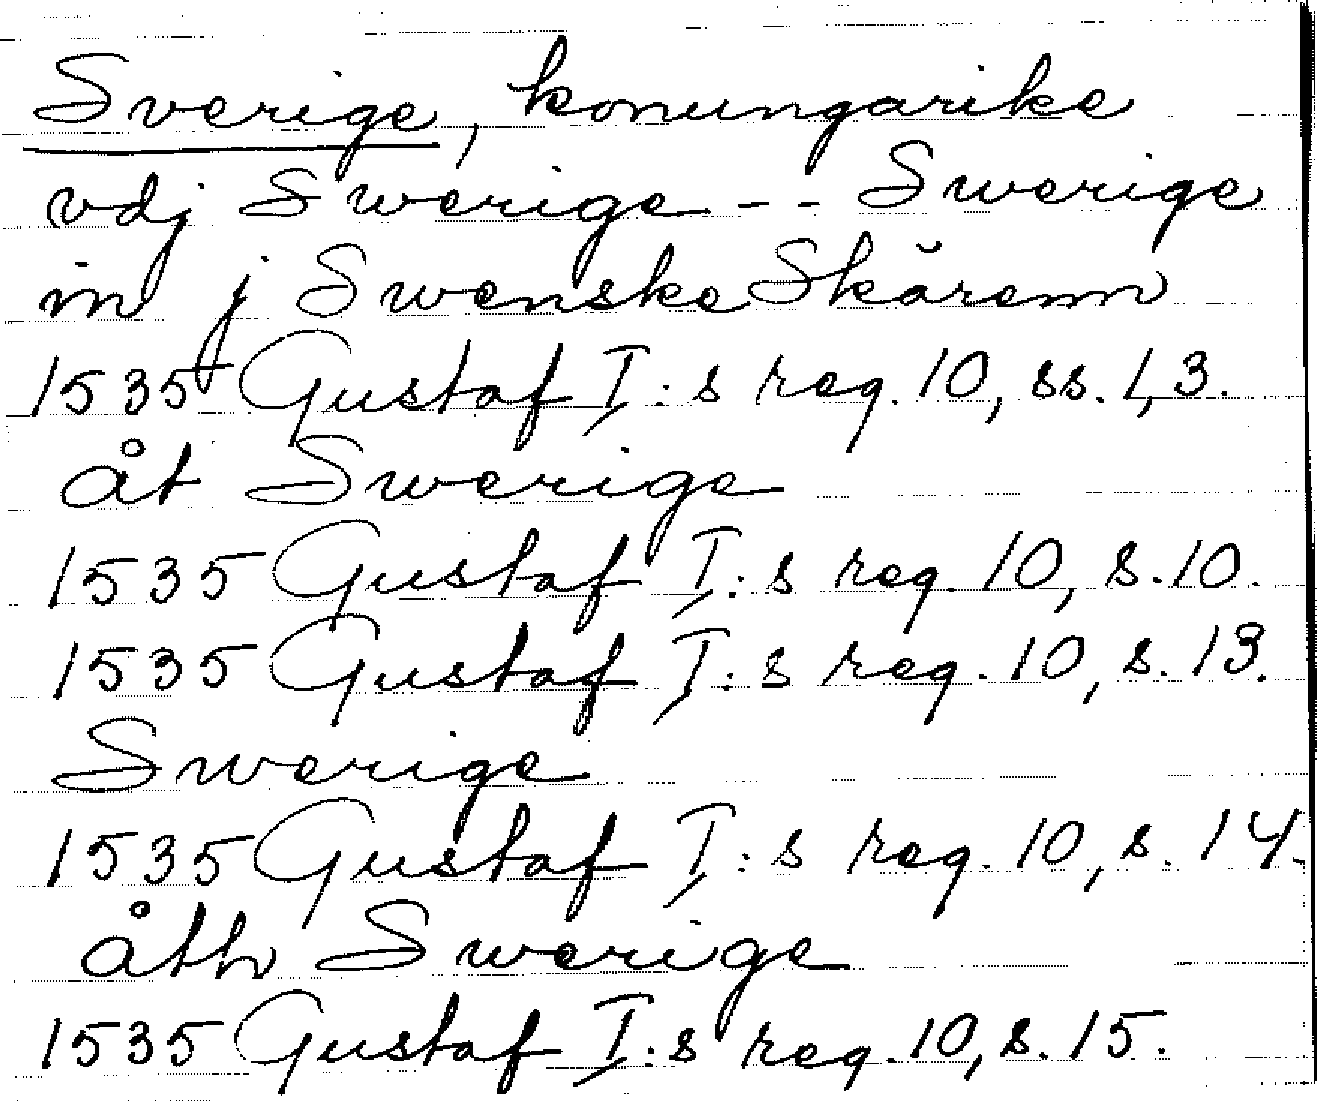 Sverige, konungarike
vdj Swerige -- Swerige
in j Swenske Skärenn
1535 Gustaf I:s reg. 10, ss. 1, 3.
åt Swerige
1535 Gustaf I:s reg. 10, s. 10.
1535 Gustaf I:s reg. 10, s. 13.
Swerige
1535 Gustaf I:s reg. 10, s. 14.
åth Swerige
1535 Gustaf I:s reg. 10, s. 15.